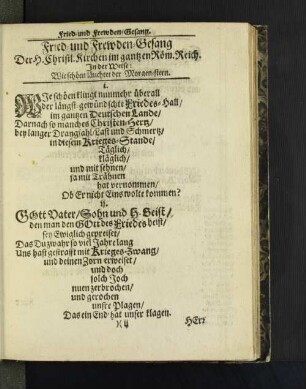 Fried und Frewden-Gesang.
Fried und Frewden-Gesang
Der H. Christl. Kirchen im gantzen Röm. Reich.
In der Weise:
Wie schön leuchtet der Morgenstern.
I.
Wie schön klingt nunmehr überall
der längst-gewündschte Friedes-Hall/
im gantzen Deutschen Lande/
Darnach so manches Christen-Hertz/
bey langer Drangsahl/Last und Schmertz/
in diesem Krieges-Stande/
Täglich/
kläglich/
und mit sehnen/
ja mit Trähnen
hat vernommen/
Ob Er nicht Eins wolte kommen?
II.
GOtt Vater/Sohn und H. Geist/
den man den GOtt des Friedes heist/
sey Ewiglich gepreiset/
Das Du zwahr so viel Jahre lang
Uns hast gestrafft mit Krieges-Zwang/
und deinen Zorn erweiset/
und doch
solch Joch
nun zerbrochen/
und gerochen
unsre Plagen/
Das ein End hat unser klagen.
X ij
HErr